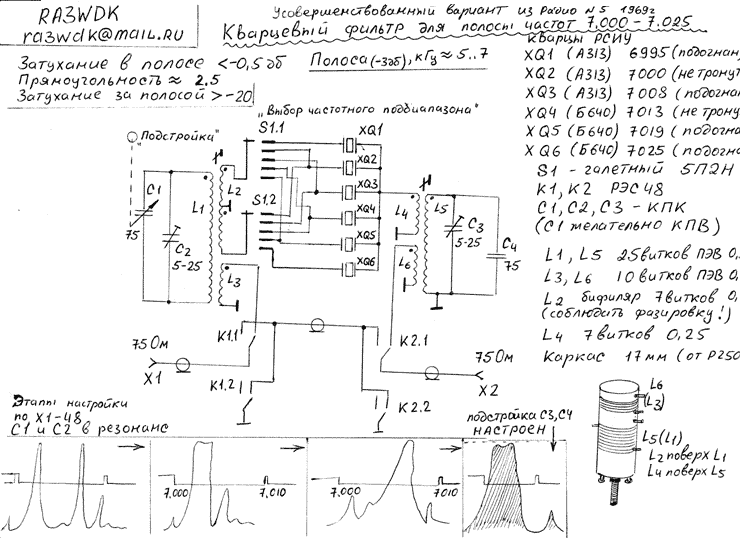 RA3WDK
ra3wdk@mail.ru
Усовершенствованный вариант из Радио N 5 1969г
Кварцевый фильтр для полосы частот 7,000 - 7.025
Затухание в полосе <-0,5дб
Прямоугольность ≈ 2.5
Затухание за полосой >-20
Полоса(-3дб), кГц ≈ 5..7
Кварцы РСИУ
XQ1 (А313) 6995
XQ2 (А313) 7000
XQ3 (А313) 7008
XQ4 (Б640) 7013
XQ5 (Б640) 7019
XQ6 (Б640) 7025
S1 - галетный 5П2Н
К1, К2 РЭС48
С1, С2, С3 - КПК
(С1 желательно КПВ)
L1, L5 25 витков ПЭВ
L3, L6 10 витков ПЭВ
L2 бифиляр 7 витков
(соблюдать фазировку!)
L4 7 витков 0,25
Каркас 17мм (от Р250
„Подстройка"
„Выбор частотного поддиапазона"
S1.1
S1.2
XQ1
XQ2
XQ3
XQ4
XQ5
XQ6
C1
75
C2
5-25
L1
L2
L3
L4
L5
L6
C3
5-25
C4
75
K1.1
K1.2
K2.1
K2.2
75 Ом
X1
75 Ом
X2
Этапы настройки
по X1-48
С1 и С2 в резонанс
подстройка С3,С4
НАСТРОЕН
7,000
7,010
7,000
7010
L6
(L3)
L5(L1)
L2 поверх L1
L4 поверх L5